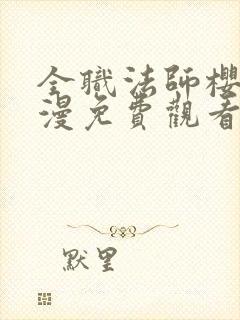 全職法師櫻
漫免費觀看
默里